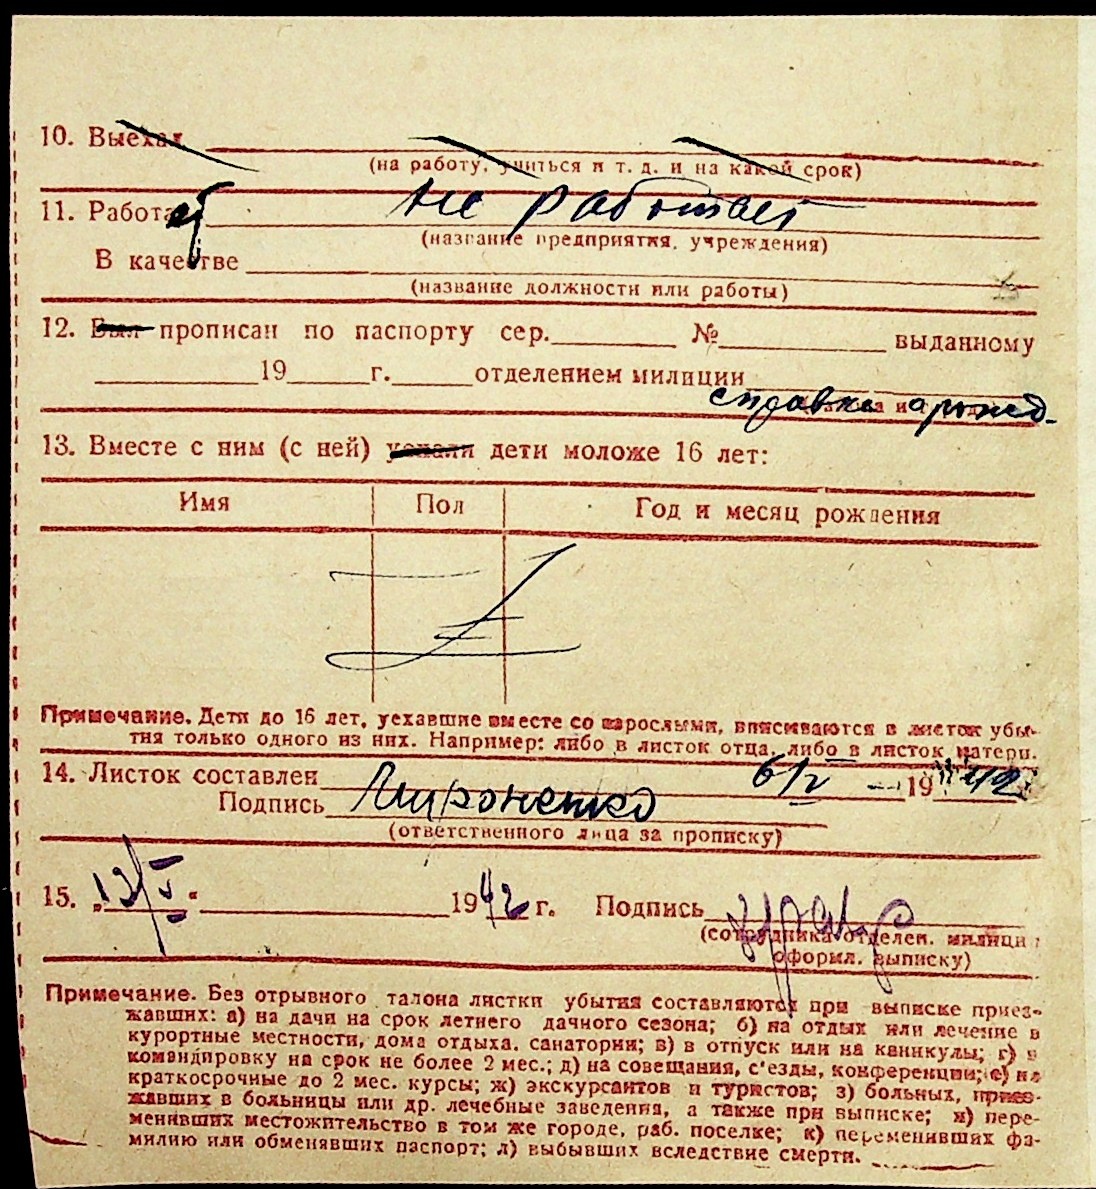 10. Выехал
(на работу, учиться и т. д. и на какой срок)
11. Работает не работает
(название предприятия, учреждения)
В качестве
(название должности или работы)
12. Был прописан по паспорту сер. № выданному
19 г. отделением милиции
справка о рожд.
13. Вместе с ним (с ней) уехали дети моложе 16 лет:
Имя Пол Год и месяц рождения
Примечание. Дети до 16 лет, уехавшие вместе со взрослыми, вписываются в листок убы-
тия только одного из них. Например: либо в листок отца, либо в листок матери.
14. Листок составлен 6/V 1942
Подпись Мироненко
(ответственного лица за прописку)
15. „12/V“ 1942 г. Подпись
(сотрудника отделен. милиции
оформл. выписку)
Примечание. Без отрывного талона листки убытия составляются при выписке приез-
жавших: а) на дачи на срок летнего дачного сезона; б) на отдых или лечение в
курортные местности, дома отдыха, санатории; в) в отпуск или на каникулы; г) в
командировку на срок не более 2 мес.; д) на совещания, с'езды, конференции; е) на
краткосрочные до 2 мес. курсы; ж) экскурсантов и туристов; з) больных, приез-
жавших в больницы или др. лечебные заведения, а также при выписке; и) пере-
менивших местожительство в том же городе, раб. поселке; к) переменивших фа-
милию или обменявших паспорт; л) выбывших вследствие смерти.